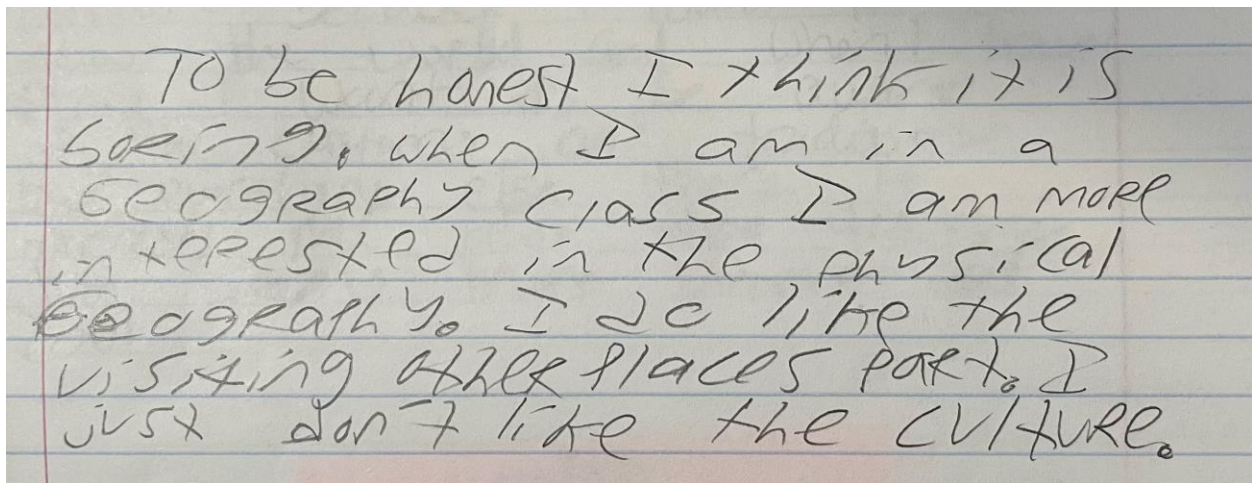 To be honest I think it is
boring. when I am in a
Geography class I am more
interested in the physical
Geography. I do like the
visiting other places part. I
just don't like the culture.